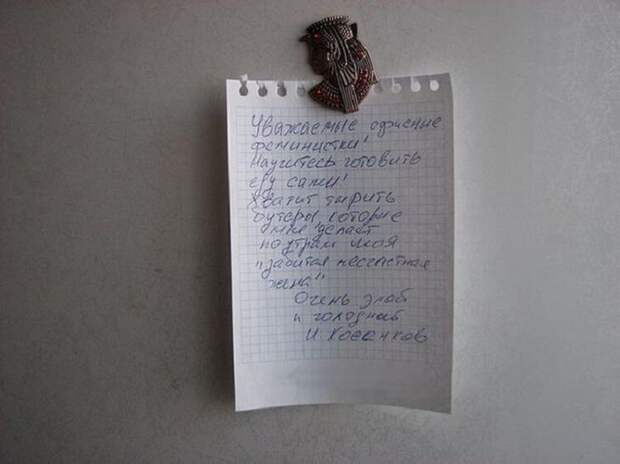 Уважаемые офисные
феминистки!
Научитесь готовить
еду сами!
Хватит тырить
бутеры, которые
мне делает
по утрам моя
"забитая несчастная
жена"
Очень злой
и голодный
И